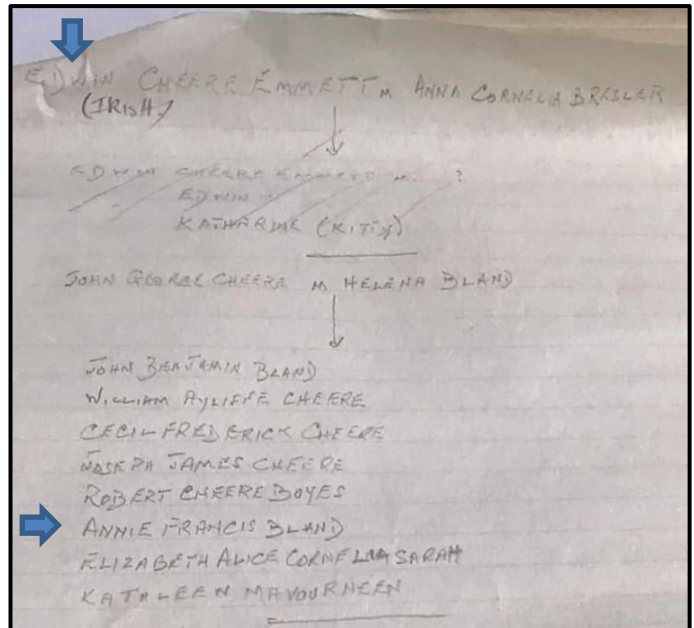 EDWIN CHEERE EMMETT M ANNA CORNELIA BRESLER
(IRISH)
EDWIN CHEERE EMMETT M. ?
EDWIN
KATHARINE (KITTY)
JOHN GEORGE CHEERE M HELENA BLAND
JOHN BENJAMIN BLAND
WILLIAM AYLIFFE CHEERE
CECIL FREDERICK CHEERE
JOSEPH JAMES CHEERE
ROBERT CHEERE BOYES
ANNIE FRANCIS BLAND
ELIZABETH ALICE CORNELIA SARAH
KATHLEEN MAVOURNEEN